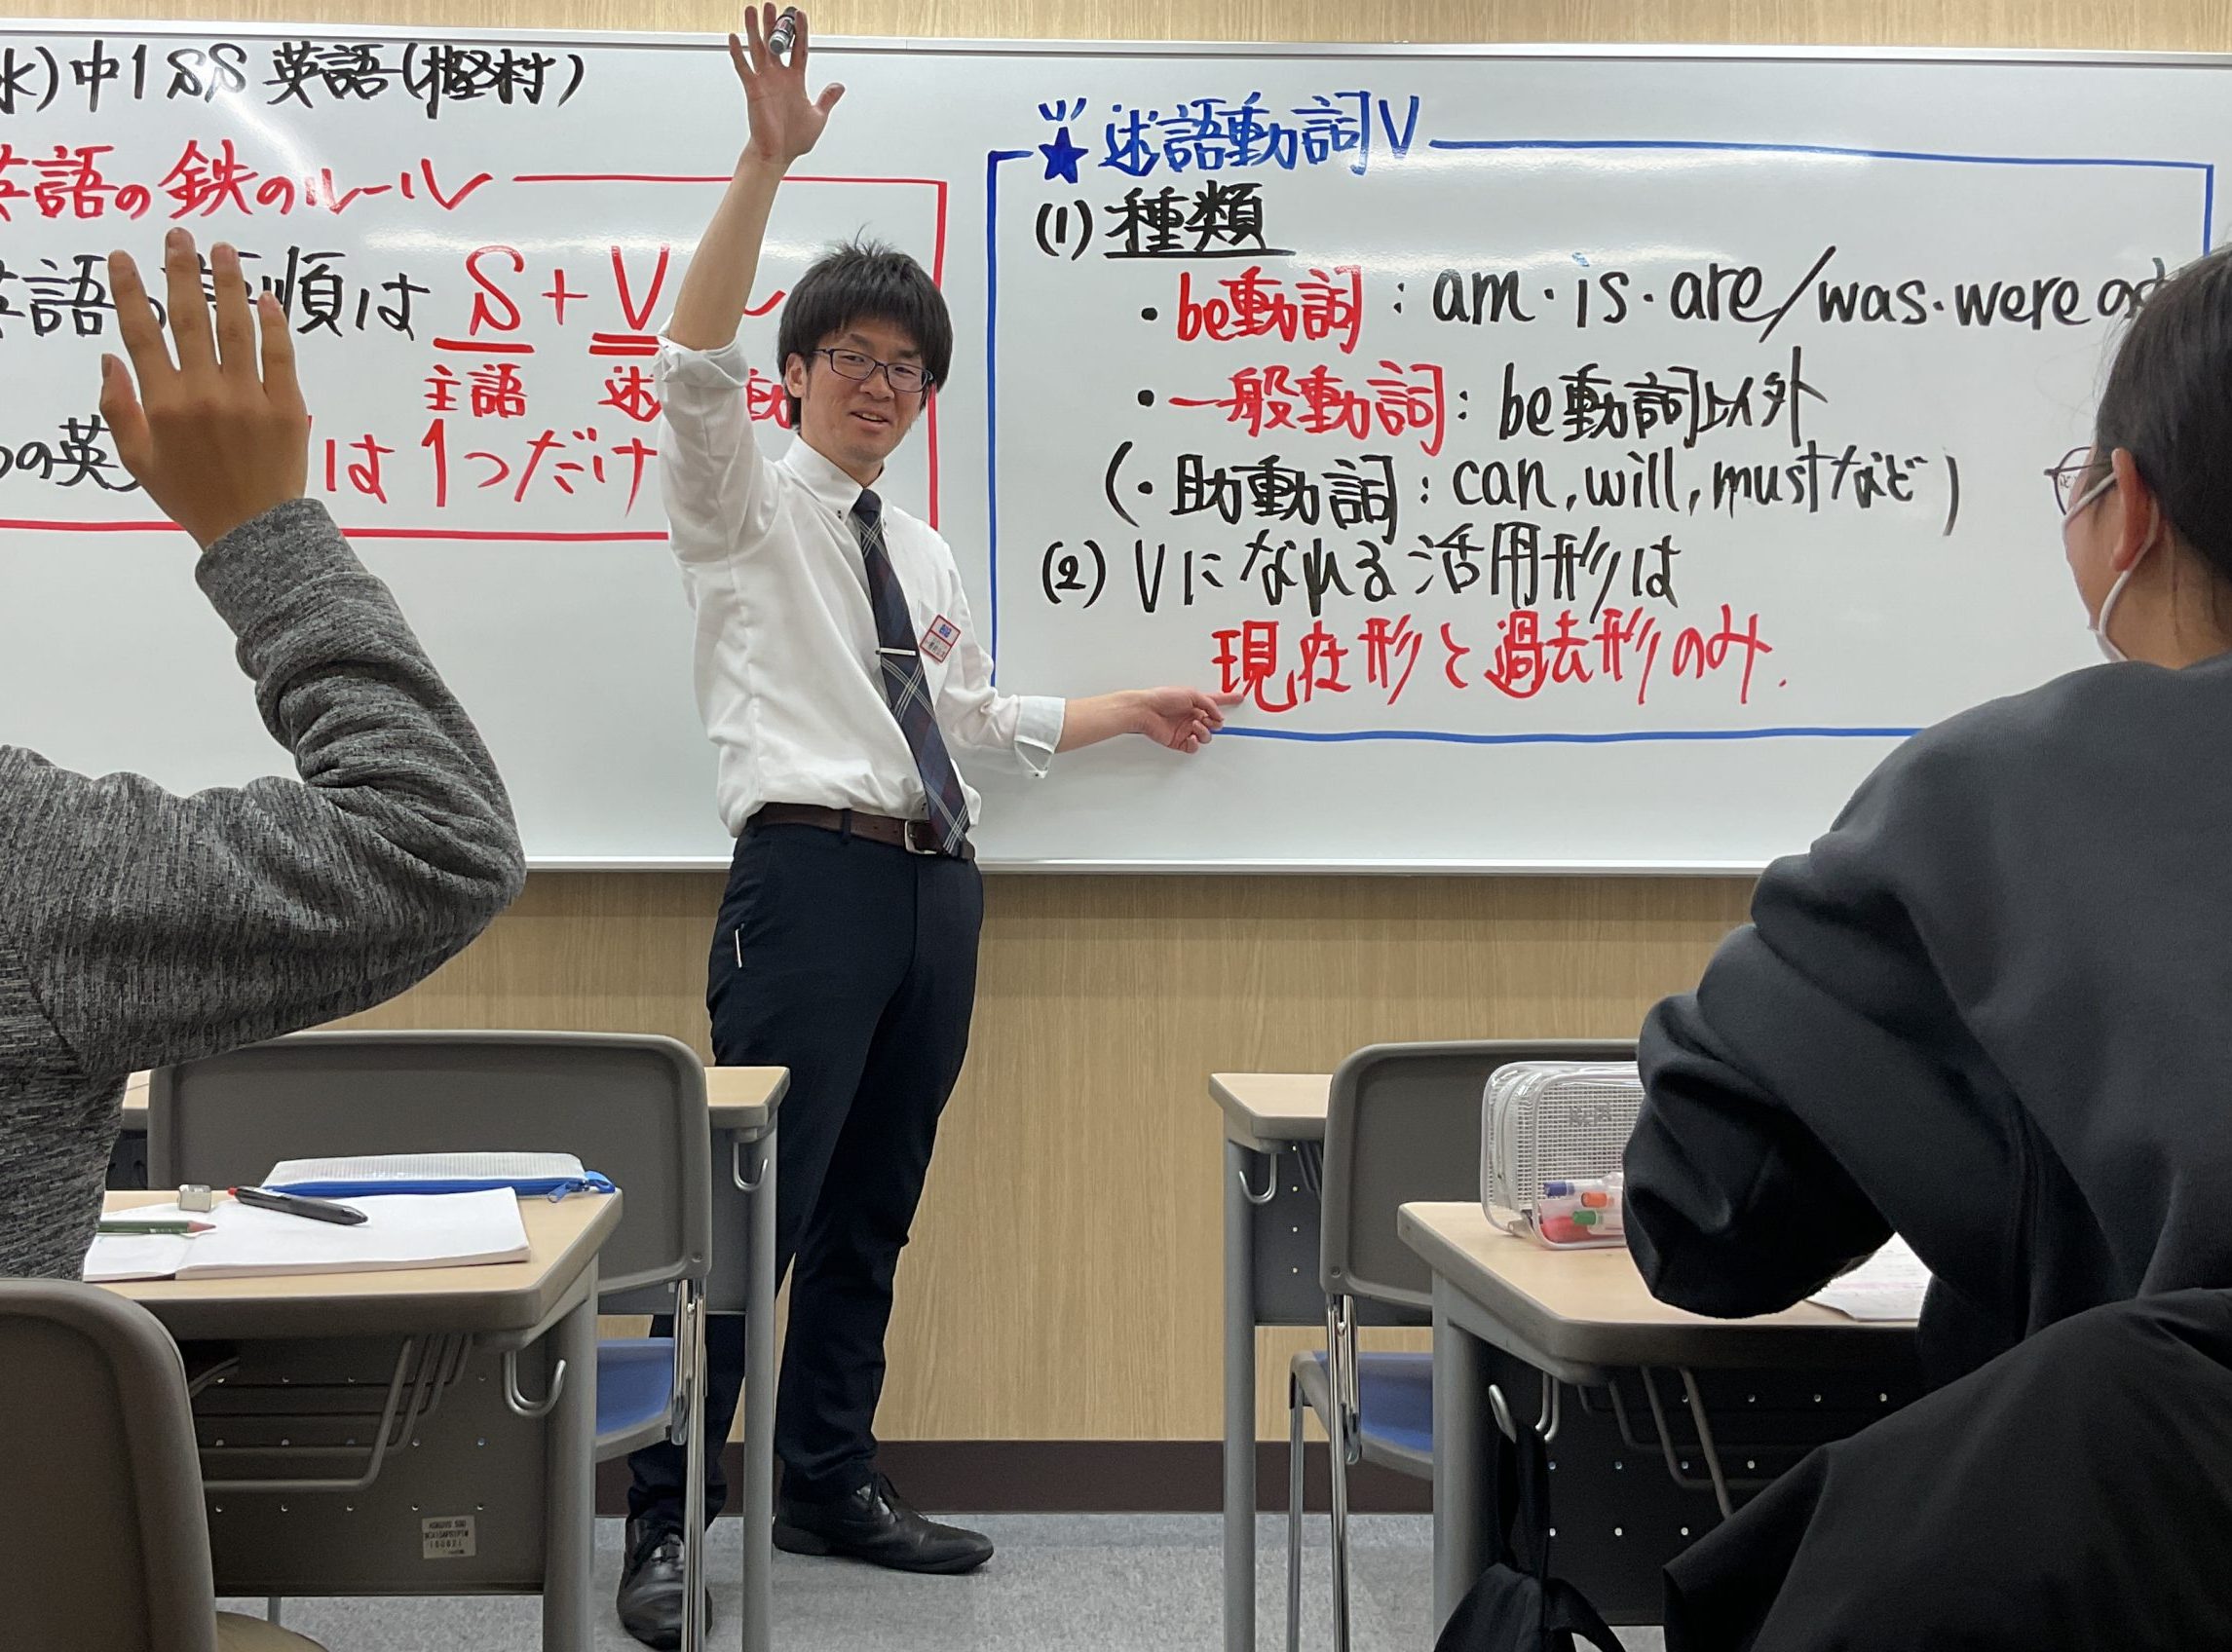 水)中1 SS 英語(樫村)
英語の鉄のルール
英語の語順は S+V ~
主語 述 動
つの英 は1つだけ
★述語動詞V
(1)種類
・be動詞:am・is・are/was・were
・一般動詞:be動詞以外
(・助動詞:can,will,mustなど)
(2)Vになれる活用形は
現在形と過去形のみ.